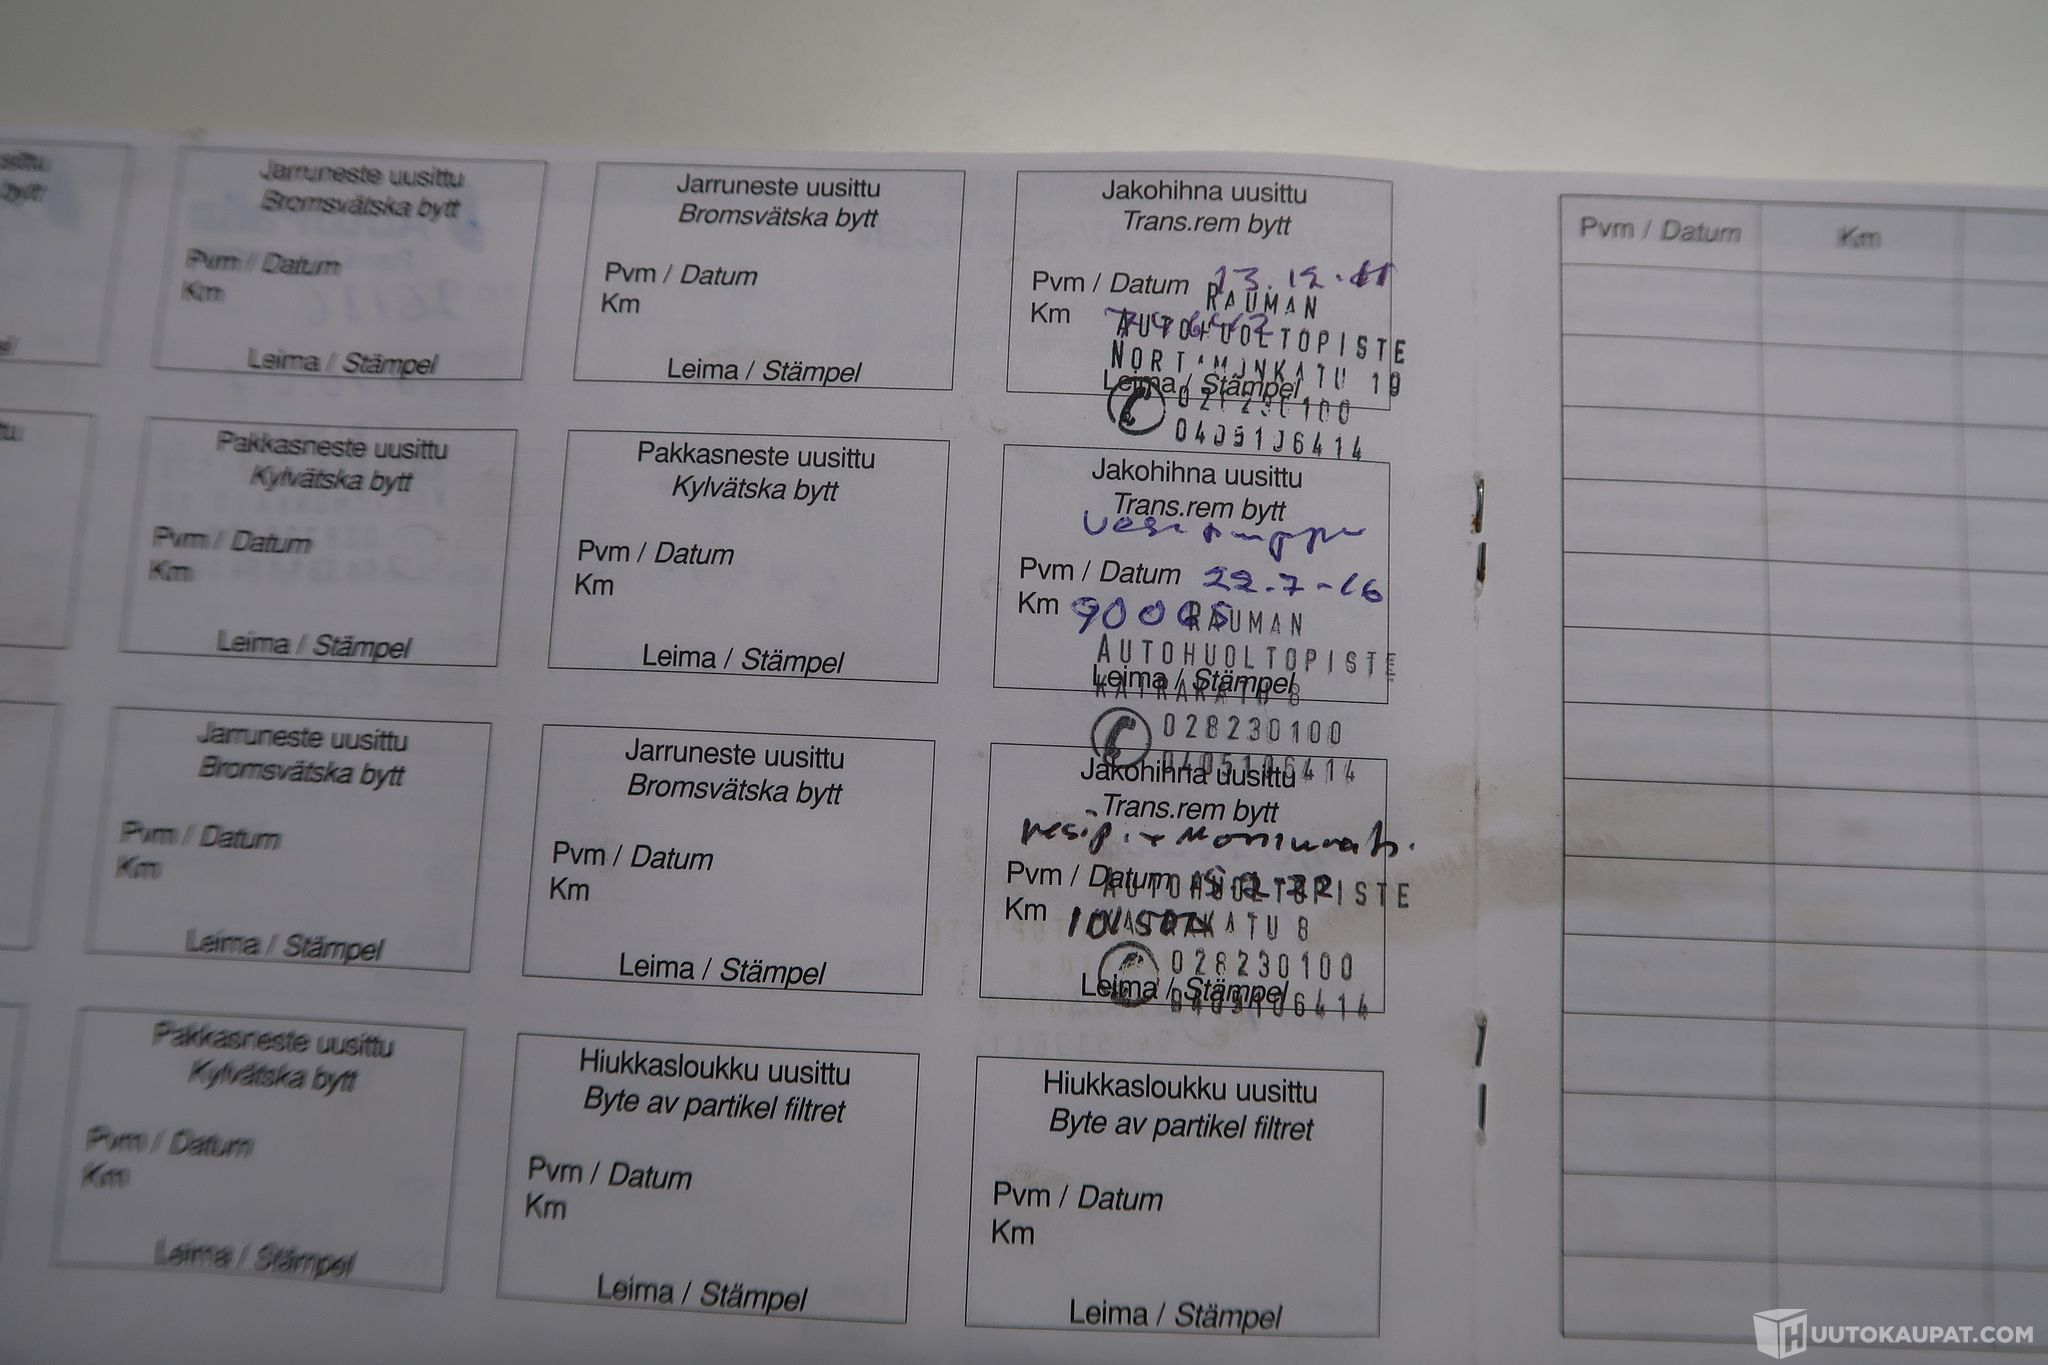 Jarruneste uusittu
Bromsvätska bytt
Pvm / Datum
Km
Leima / Stämpel
Jarruneste uusittu
Bromsvätska bytt
Pvm / Datum
Km
Leima / Stämpel
Jakohihna uusittu
Trans.rem bytt
Pvm / Datum 13.12.11
Km
RAUMAN
AUTOHUOLTOPISTE
NORTAMONKATU 10
Leima / Stämpel
028230100
0405106414
Pvm / Datum
Km
Pakkasneste uusittu
Kylvätska bytt
Pvm / Datum
Km
Leima / Stämpel
Pakkasneste uusittu
Kylvätska bytt
Pvm / Datum
Km
Leima / Stämpel
Jakohihna uusittu
Trans.rem bytt
Vesipumppu
Pvm / Datum 22.7-16
Km 90005
RAUMAN
AUTOHUOLTOPISTE
KAIRAKATU 8
Leima / Stämpel
028230100
0405106414
Jarruneste uusittu
Bromsvätska bytt
Pvm / Datum
Km
Leima / Stämpel
Jarruneste uusittu
Bromsvätska bytt
Pvm / Datum
Km
Leima / Stämpel
Jakohihna uusittu
Trans.rem bytt
Pvm / Datum
AUTOHUOLTOPISTE
Km
KAIRAKATU 8
028230100
Leima / Stämpel
0405106414
Pakkasneste uusittu
Kylvätska bytt
Pvm / Datum
Km
Leima / Stämpel
Hiukkasloukku uusittu
Byte av partikel filtret
Pvm / Datum
Km
Leima / Stämpel
Hiukkasloukku uusittu
Byte av partikel filtret
Pvm / Datum
Km
Leima / Stämpel
HUUTOKAUPAT.COM